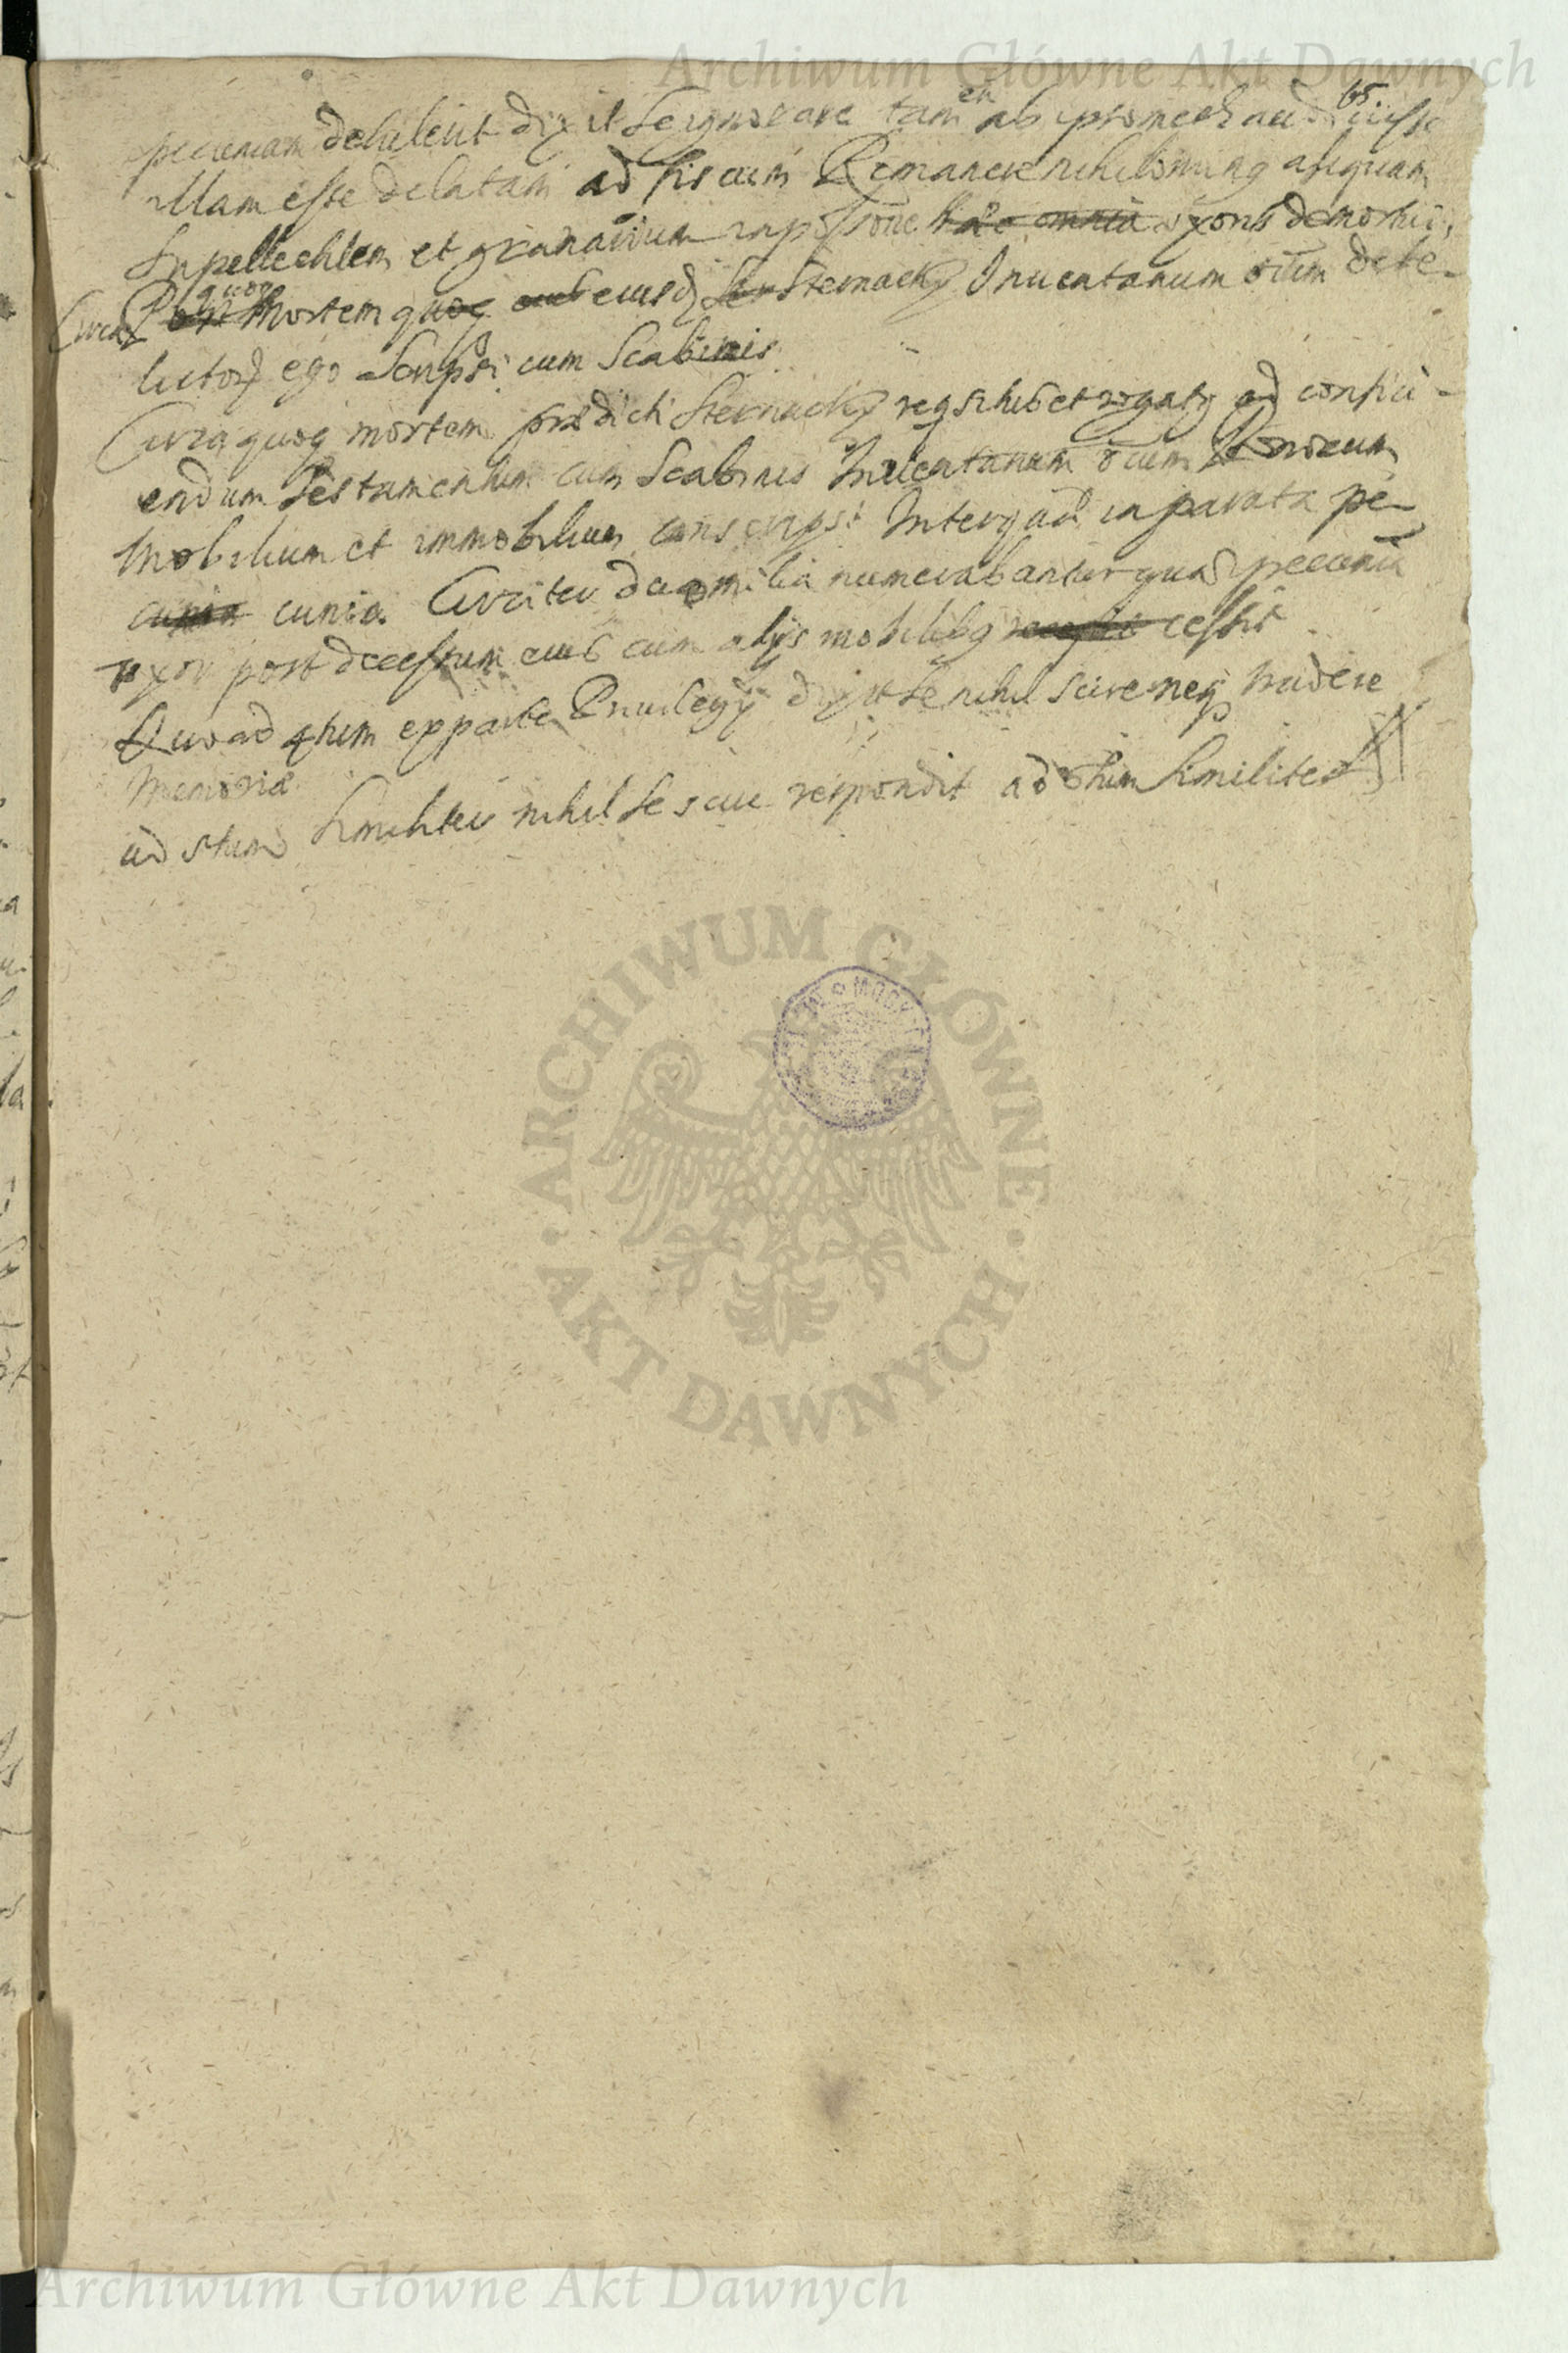 Archiwum Główne Akt Dawnych
65
pecuniam detulerit dixit se ignorare tamen ab ipsomet audivisse
illam esse delatam ad fiscum Remanere nihilominq aliquam
Supellectilem et granarium in possone uxoris demortui,
Circa quoq Mortem eiusd Sternacky Inventarium oium debi-
litorz ego Scripsi cum Scabinis
Circa quoq mortem prædicti Sternacky reqsitus et rogatq ad confici-
endum testamentum cum Scabinis Inventarium oium bonorum
Mobilium et immobilium conscripsi Inter quæ in parata pe-
cunia cunia. Circiter duo milia numerabantur quæ pecunia
uxori post decessum eius cum alys mobilibq cessit
Quo ad 4tum ex parte Privilegy dixit se nihil scire neq tradere
Memoriæ
ad 5tum Similiter nihil se scire respondit ad 6tum Similiter
ARCHIWUM GŁÓWNE
AKT DAWNYCH
Archiwum Główne Akt Dawnych